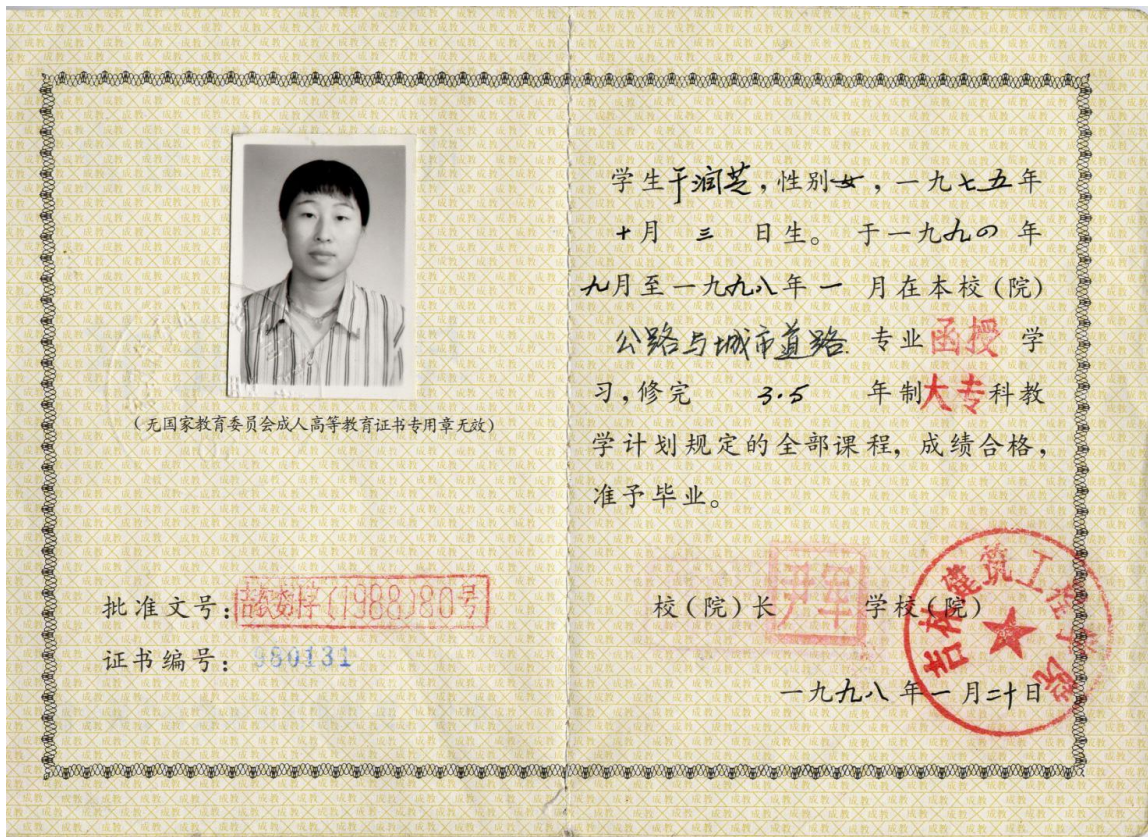 (无国家教育委员会成人高等教育证书专用章无效)
批准文号:吉教委成字(1988)80号
证书编号:980131
学生于润芝,性别女,一九七五年
十月 三 日生。于一九九四 年
九月至一九九八年一 月在本校(院)
公路与城市道路 专业函授 学
习,修完 3.5 年制大专科教
学计划规定的全部课程,成绩合格,
准予毕业。
校(院)长 尹军 学校(院)
吉林建筑工程学院
一九九八 年一 月二十日